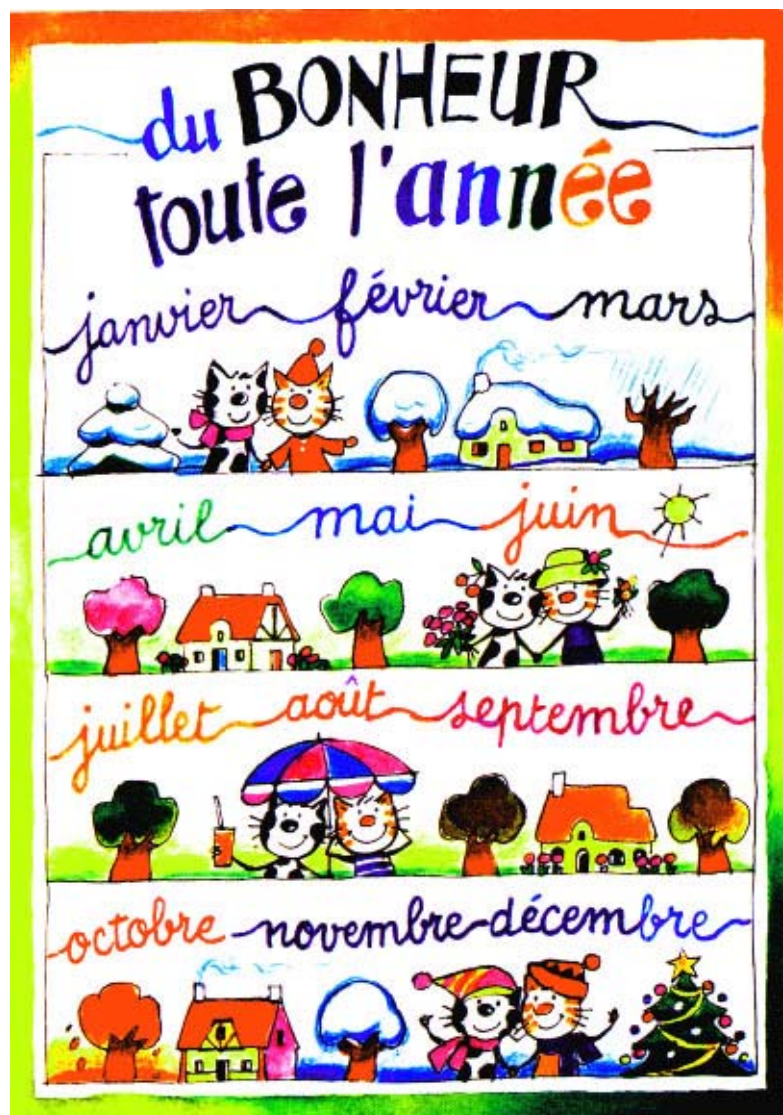 du BONHEUR
toute l'année
janvier février mars
avril mai juin
juillet août septembre
octobre novembre décembre